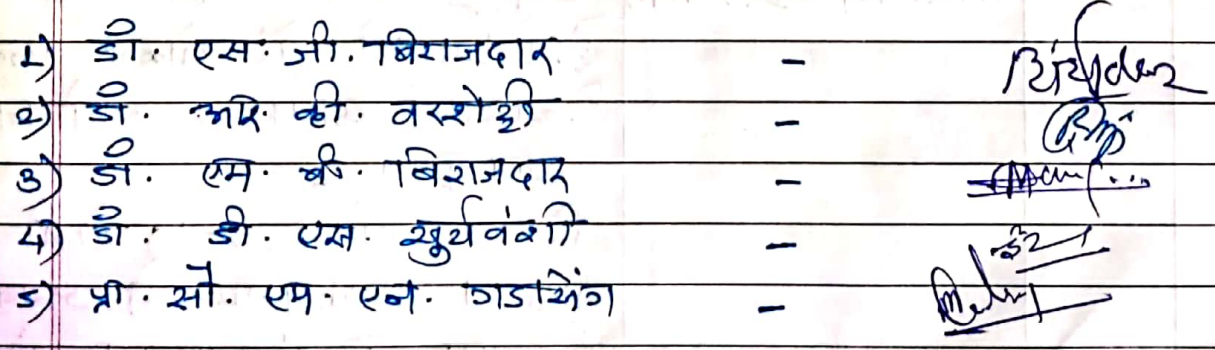 1) डॉ. एस. जी. बिराजदार -
2) डॉ. आर. व्ही. वरशेट्टी -
3) डॉ. एम. बी. बिराजदार -
4) डॉ. डी. एस. सुर्यवंशी -
5) प्रा. सौ. एम. एन. गडसिंग -